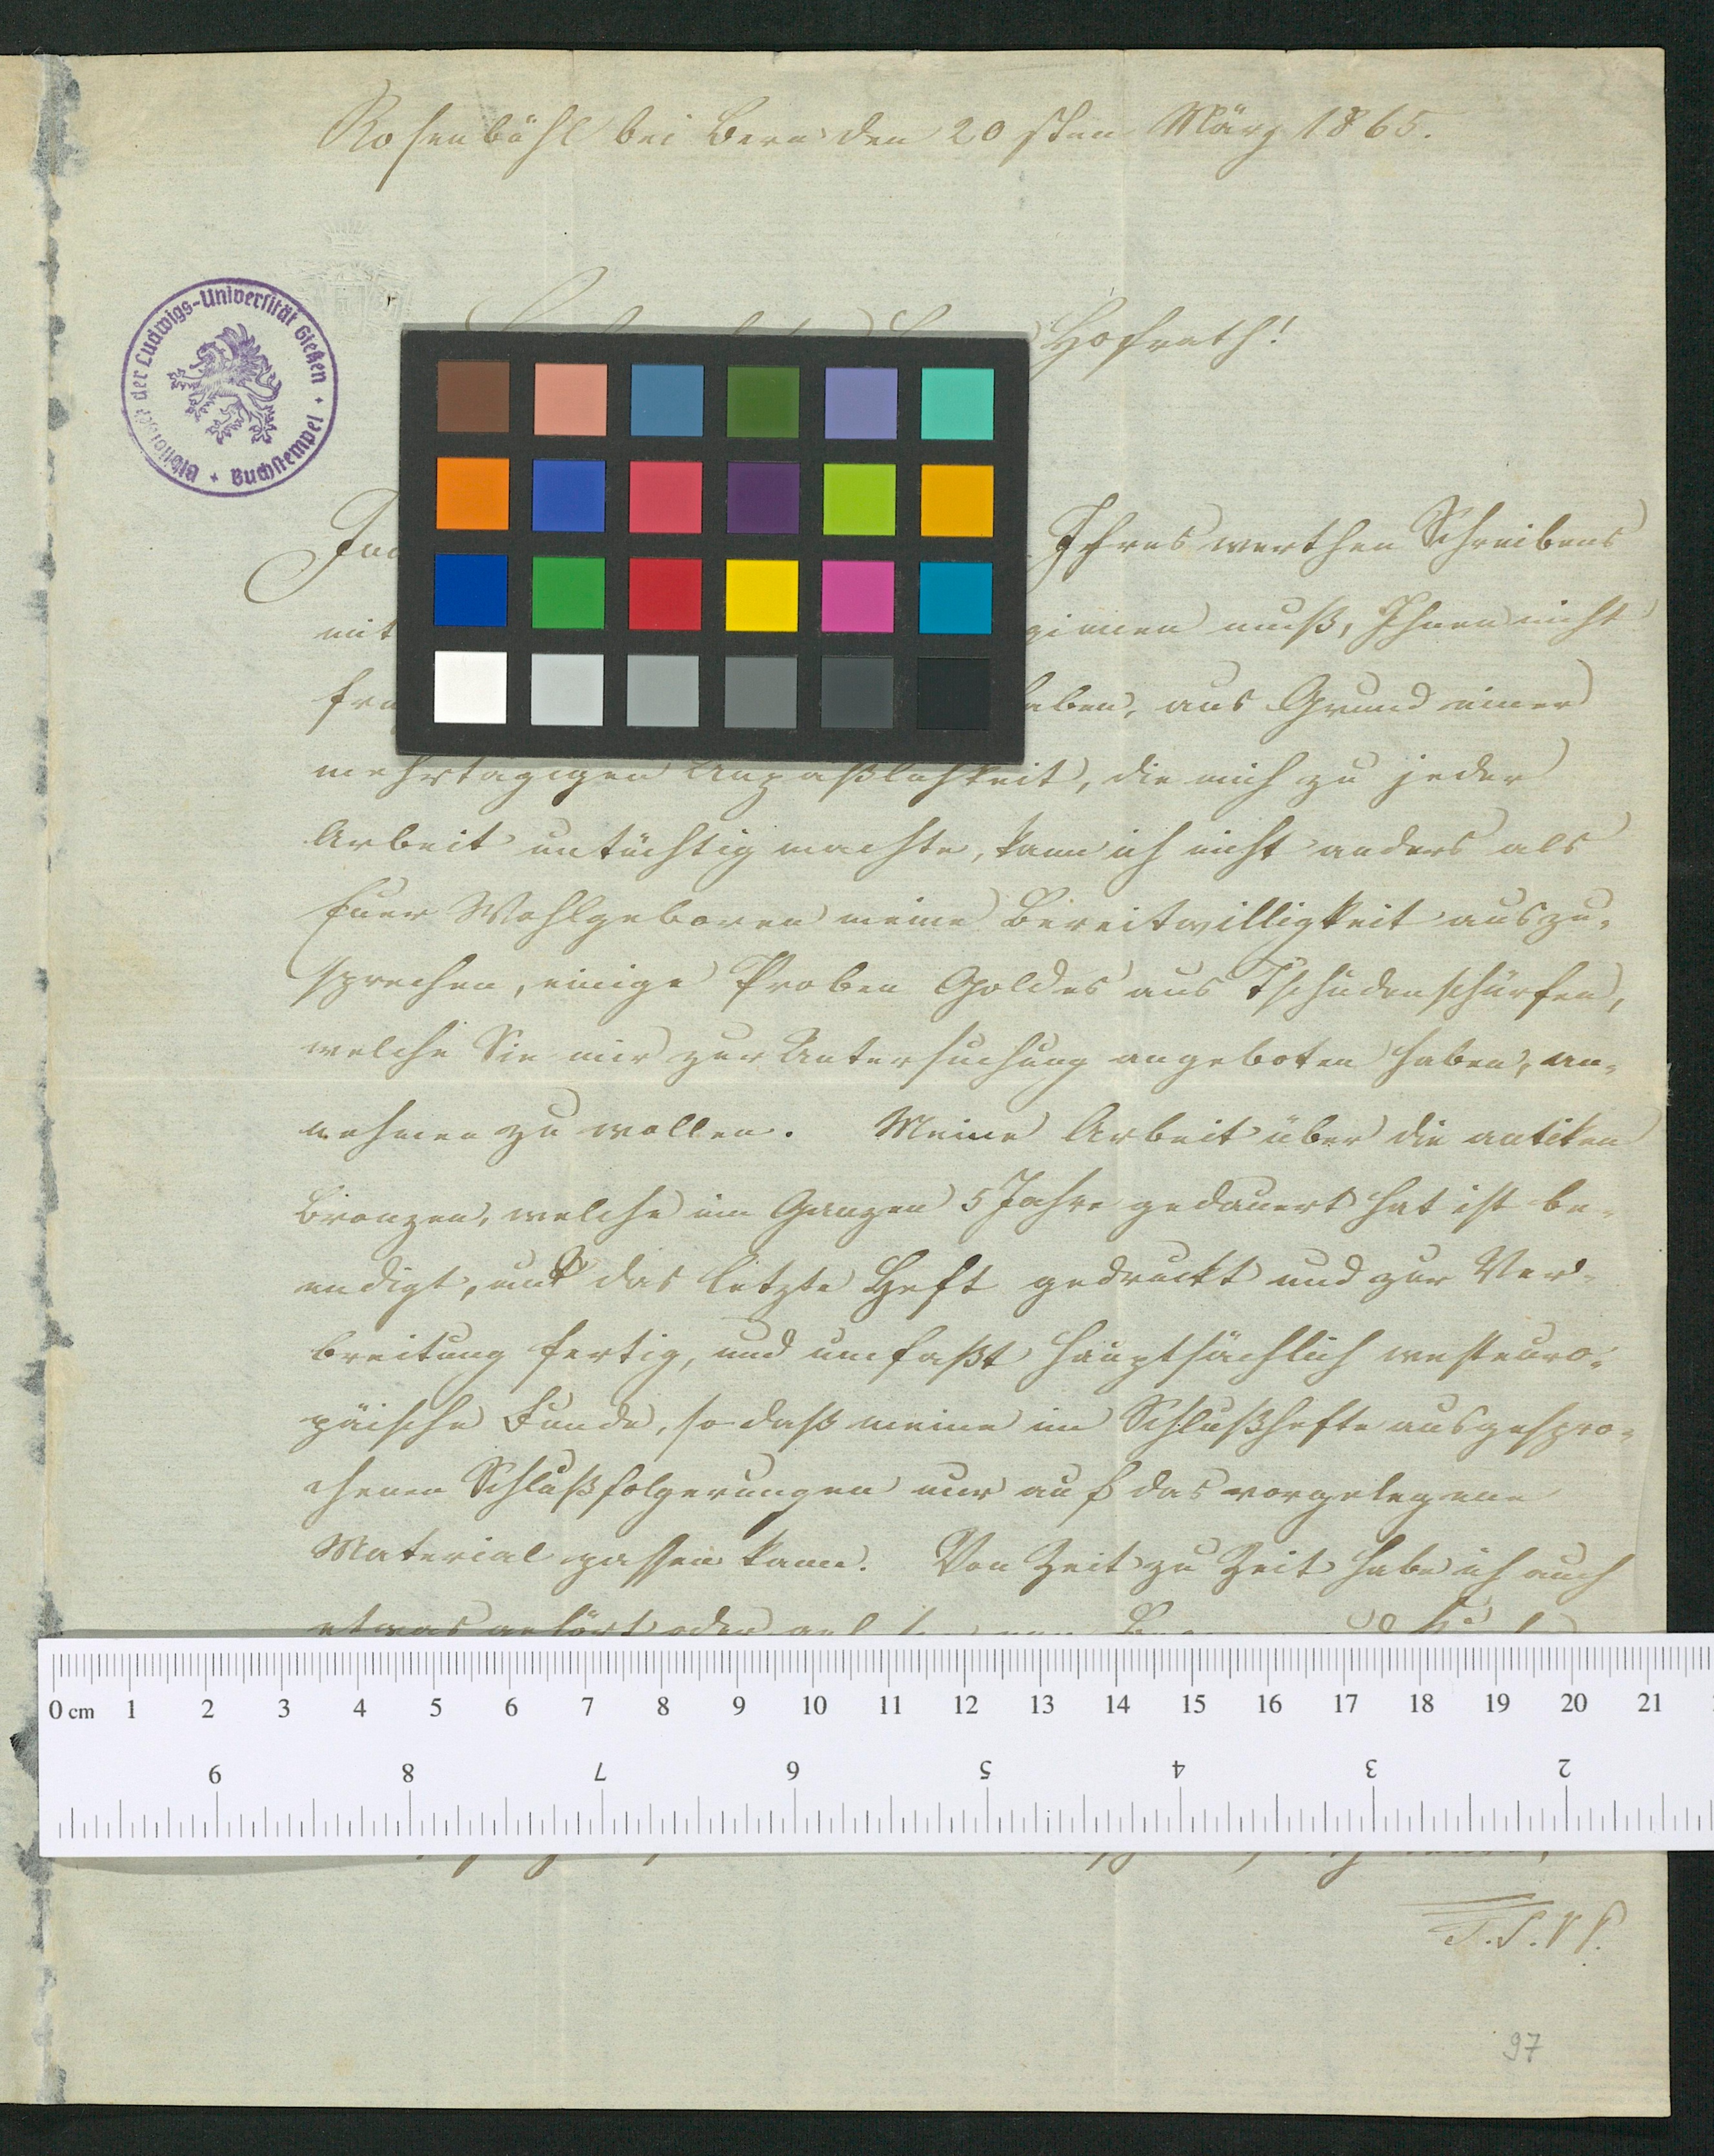 Rosenbühl bei Bern den 20sten März 1865.
Hofrath!
Bibliothek der Ludwigs-Universität Gießen + Buchstempel +
Ihres werthen Schreibens
mit muß, Ihnen nicht
aus Grund einer
mehrtägigen Unpaßlichkeit, die mich zu jeder
Arbeit untüchtig machte, kann ich nicht anders als
Euer Wohlgeboren meine Bereitwilligkeit auszu-
sprechen, einige Proben Goldes aus Tschudenschürfen,
welche Sie mir zur Untersuchung angeboten haben, an-
nehmen zu wollen. Meine Arbeit über die antiken
Bronzen, welche im Ganzen 5 Jahre gedauert hat ist be-
endigt, und das letzte Heft gedruckt und zur Ver-
breitung fertig, und umfaßt hauptsächlich westeuro-
päische Funde, so daß meine im Schlußhefte ausgespro-
chenen Schlußfolgerungen nur auf das vorgelegene
Material passen kann. Von Zeit zu Zeit habe ich auch
etwas gehört oder
0 cm 1 2 3 4 5 6 7 8 9 10 11 12 13 14 15 16 17 18 19 20 21
9 8 7 6 5 4 3 2
T.S.V.P.
97